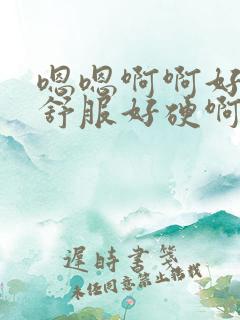 嗯嗯啊啊好
舒服好硬啊
遲時書箋
未经同意禁止转载